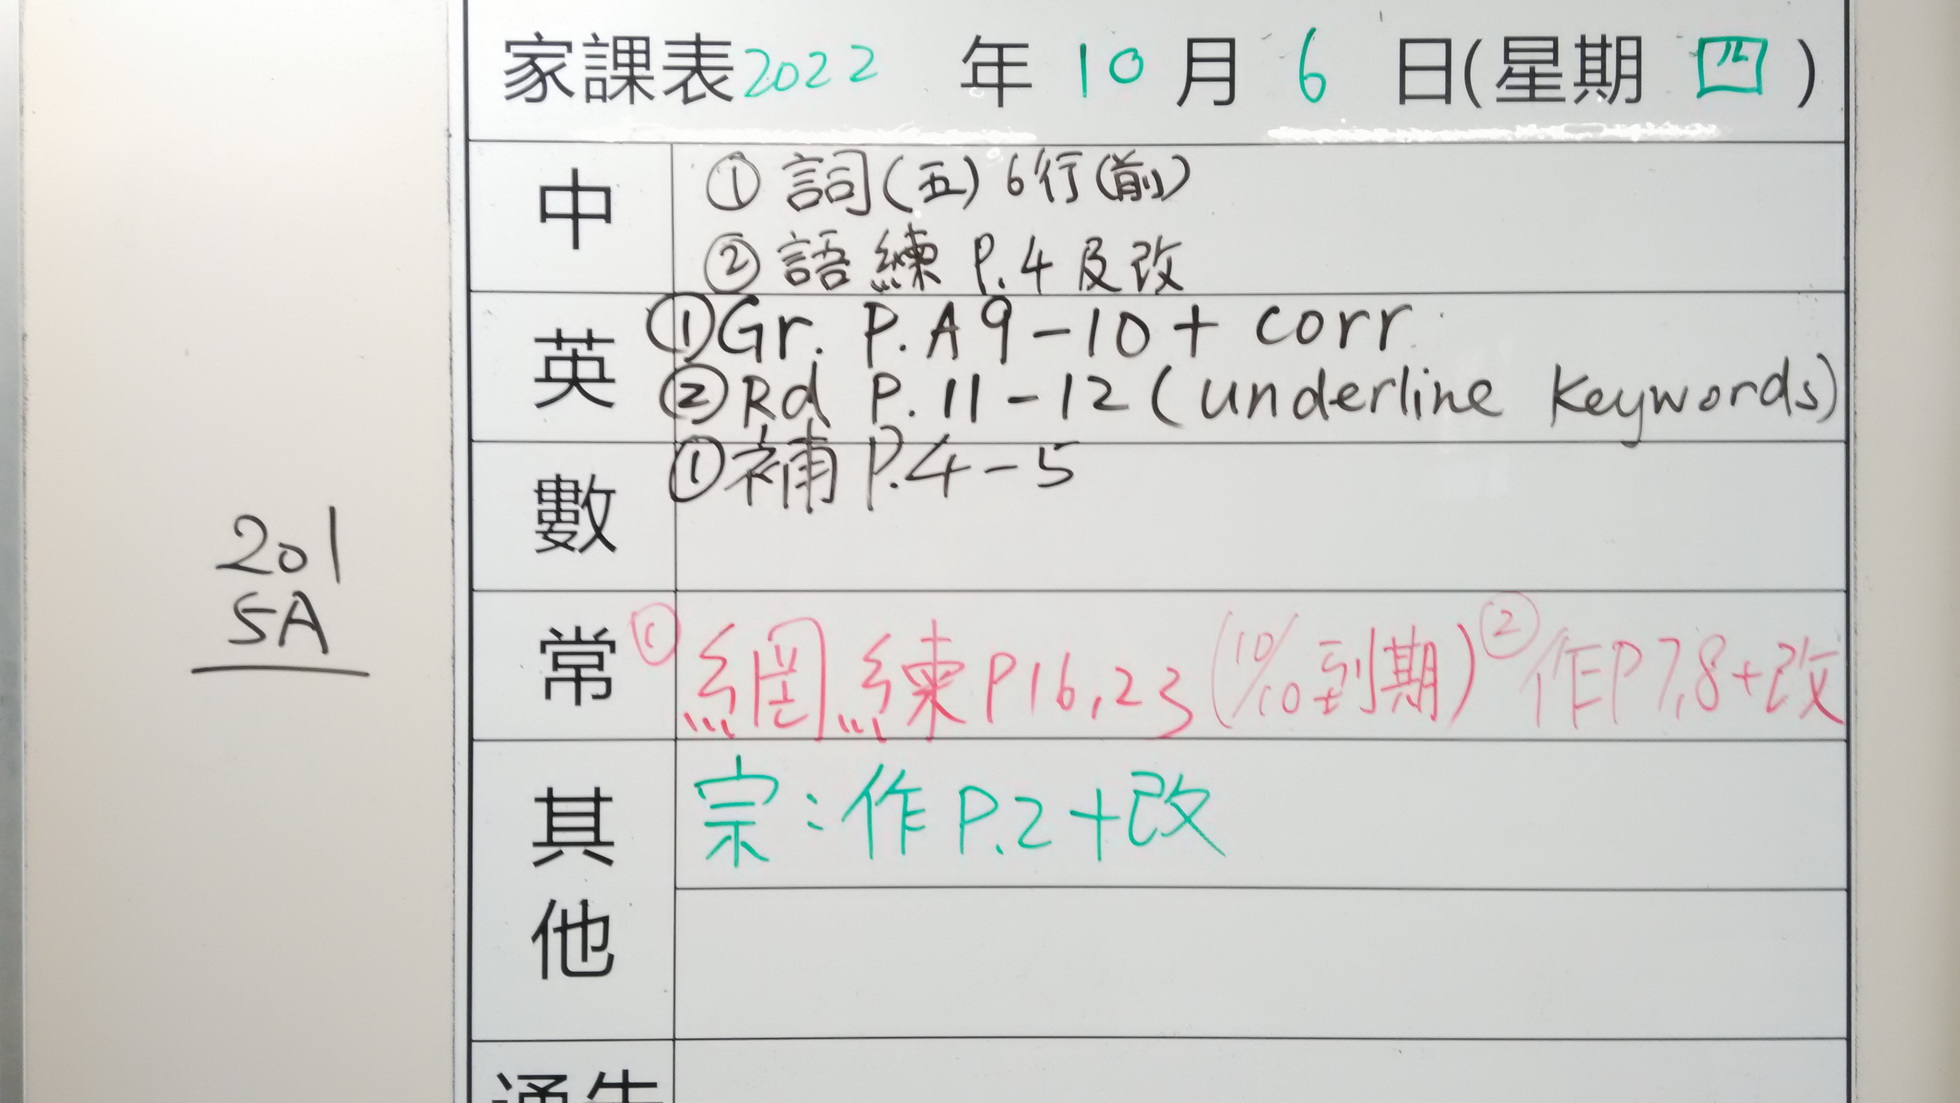 家課表2022 年 10 月 6 日(星期 四)
中
① 詞(五) 6行(前)
② 語練 P.4 及改
英
① Gr. P.A9-10 + corr.
② Rd P.11-12 (underline keywords)
數
① 補 P.4-5
常
① 網練 P16,23 (10/10到期) ② 作P7,8+改
其他
宗:作 P.2+改
通告
201
5A